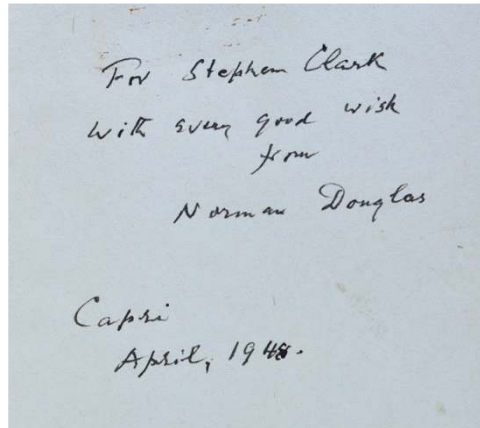 For Stephen Clark
with every good wish
from
Norman Douglas
Capri
April, 1948.